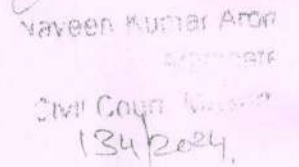 Naveen Kumar Aron
Advocate
Civil Court
134/2024